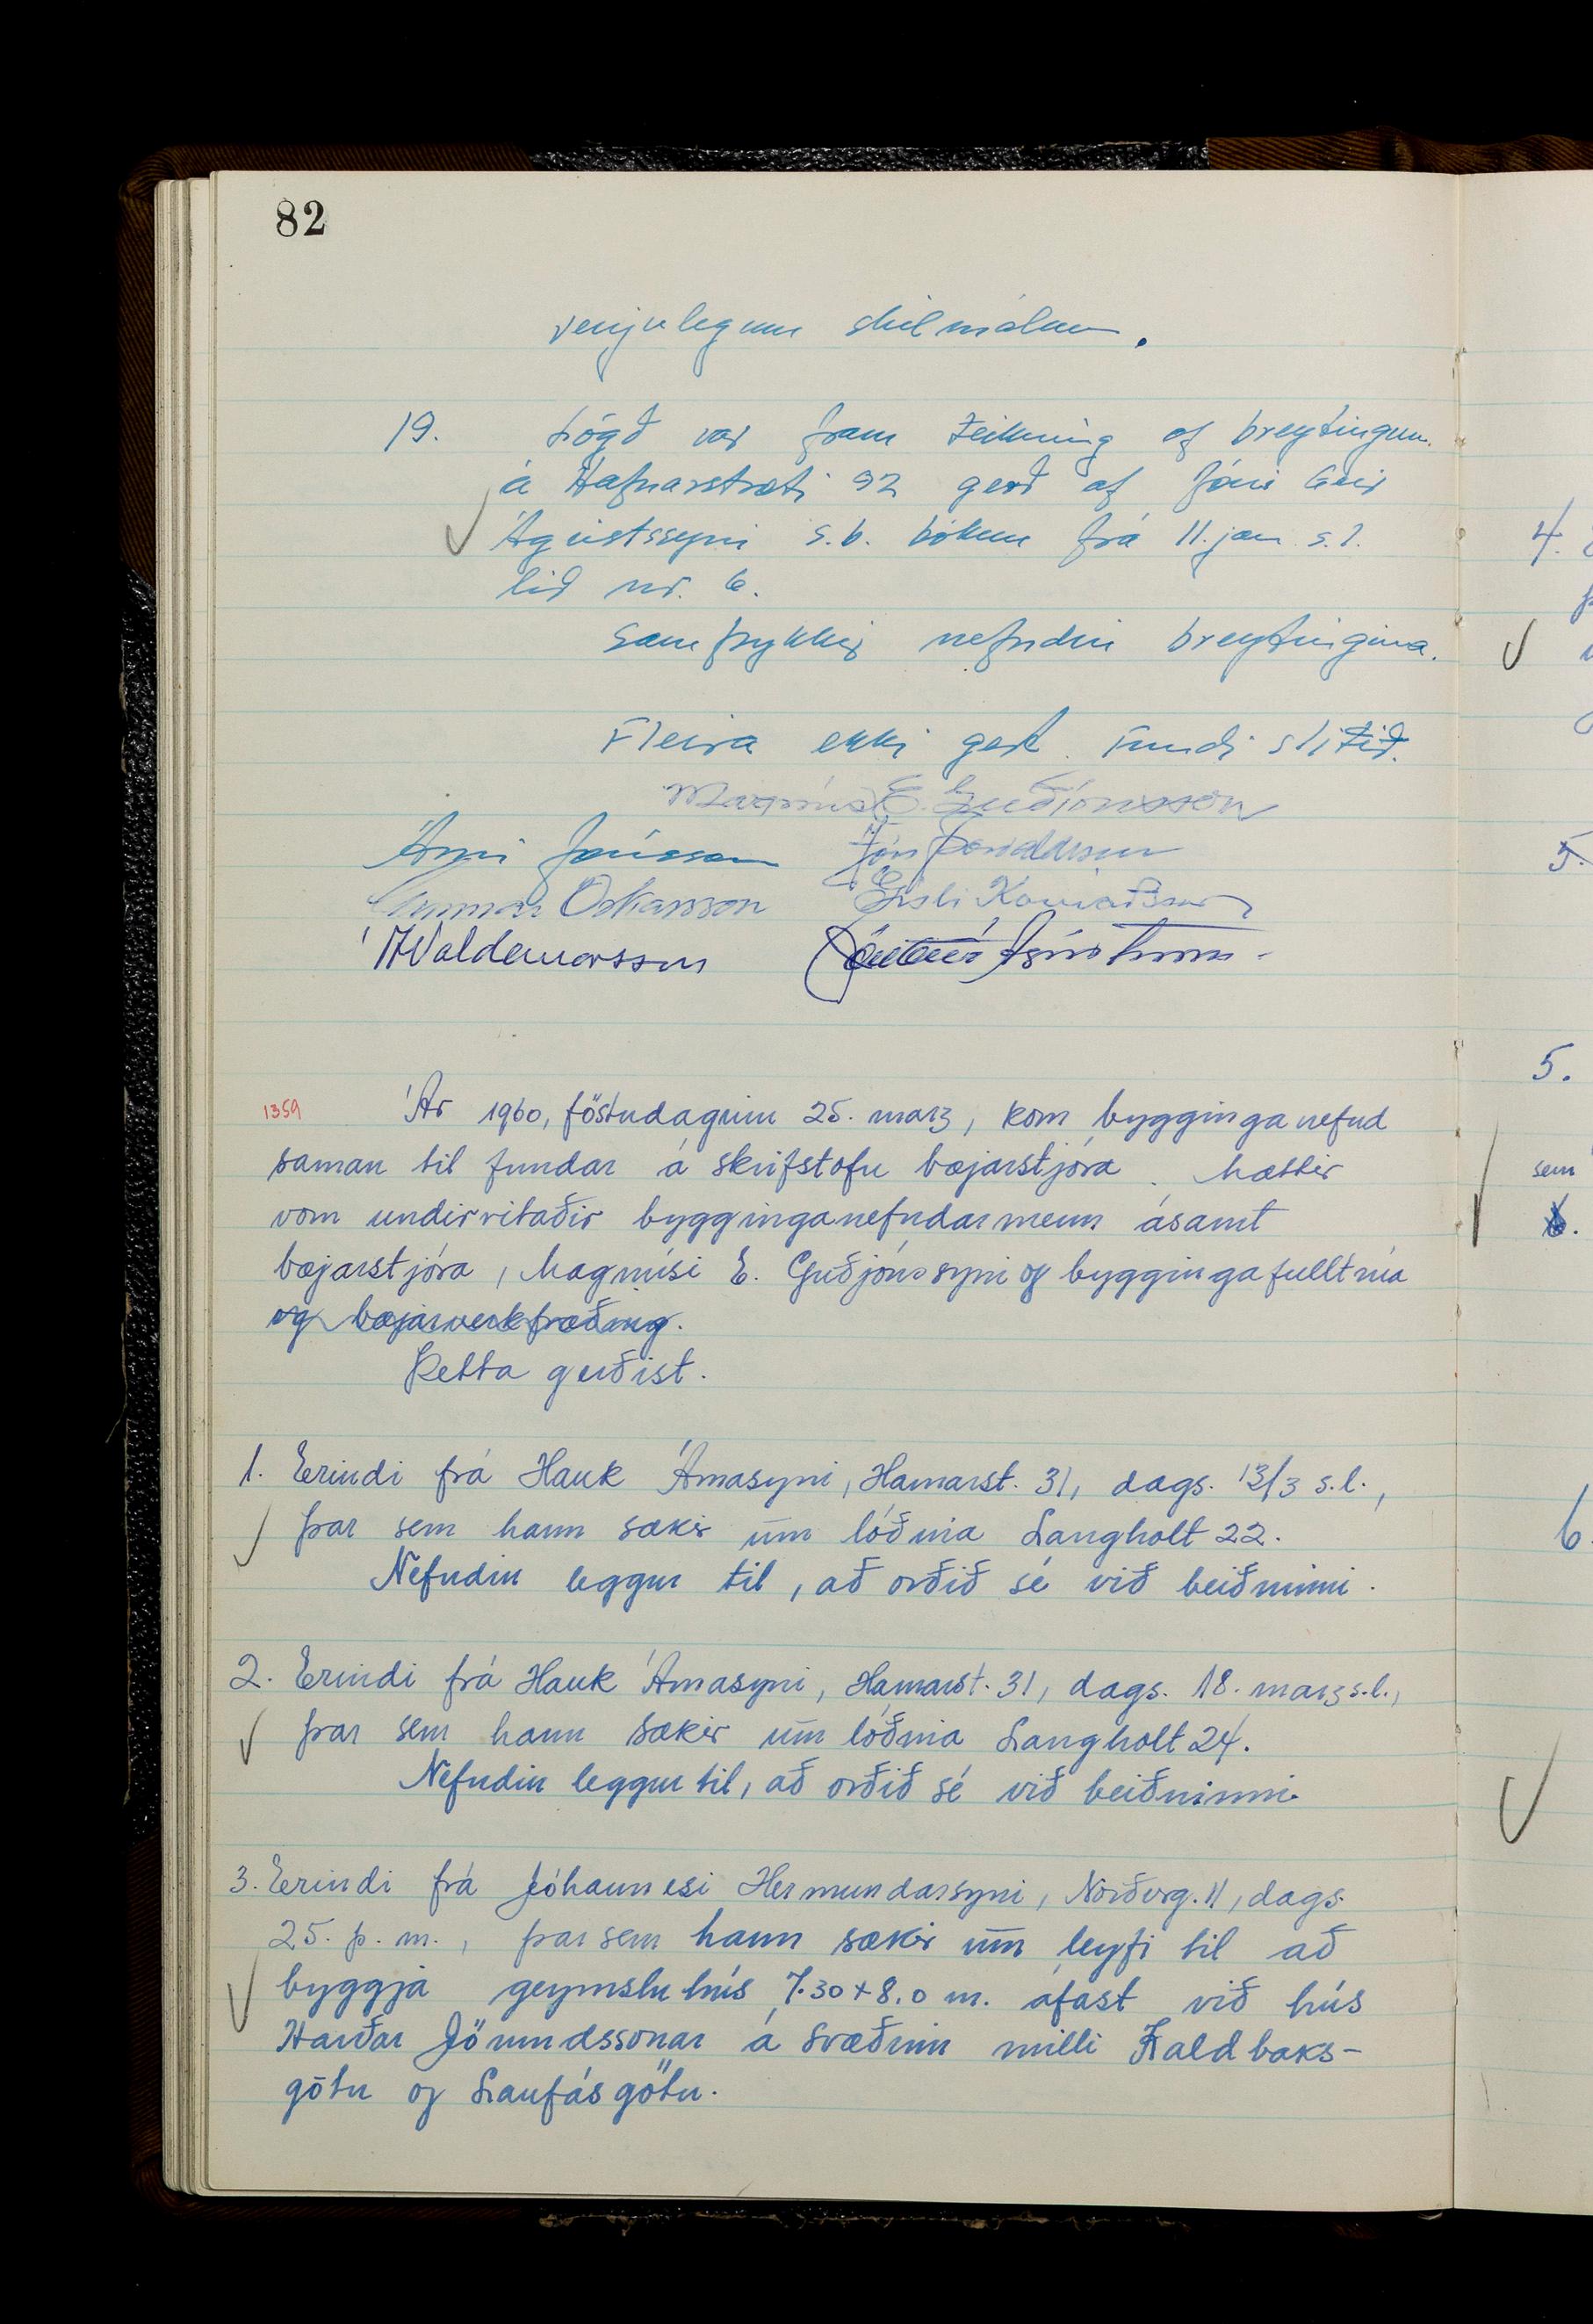 82
venjulegum skilmálum.
19. Lögð var fram teikning af breytingum
á Hafnarstræti 92 gerð af Jóni Geir
Ágústssyni s.b. bókun frá 11. jan s.l.
lið nr. 6.
Samþykkir nefndin breytingina.
Fleira ekki gert. Fundi slitið.
Magnús E. Guðjónsson
Árni Jónsson Jón Þorvaldsson
Gunnar Óskarsson Gísli Konráðsson
Á Valdemarsson Jón Geir Ágústsson
1359 Ár 1960, föstudaginn 25. marz, kom bygginganefnd
saman til fundar á skrifstofu bæjarstjóra. Mættir
voru undirritaðir bygginganefndarmenn ásamt
bæjarstjóra, Magnúsi E. Guðjónssyni og byggingafulltrúa
og bæjarverkfræðing.
Þetta gerðist.
1. Erindi frá Hauk Árnasyni, Hamarst. 31, dags. 13/3 s.l.,
þar sem hann sækir um lóðina Langholt 22.
Nefndin leggur til, að orðið sé við beiðninni.
2. Erindi frá Hauk Árnasyni, Hamarst. 31, dags. 18. marz s.l.,
þar sem hann sækir um lóðina Langholt 24.
Nefndin leggur til, að orðið sé við beiðninni.
3. Erindi frá Jóhannesi Hermundarsyni, Norðurg. 11, dags.
25. þ.m., þar sem hann sækir um leyfi til að
byggja geymsluhús 7.30 + 8.0 m. áfast við hús
Harðar Jörundssonar á svæðinu milli Kaldbaks-
götu og Laufásgötu.
4.
5.
5.
sem
6.